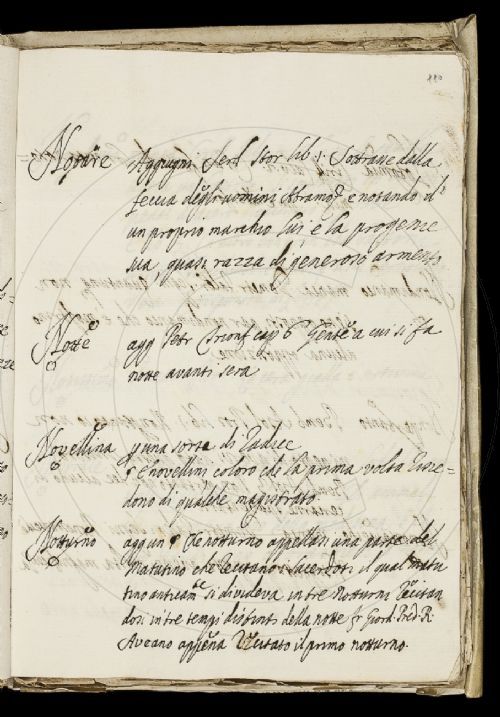 110
Notare Aggiugni Serd. Stor lib 1: Sottrasse dalla
feccia degli uomini Abramo, e notando d'
un proprio marchio lui, e la progenie
sua, quasi razza di generoso armento
Notte agg Petr cap 6 Gente a cui si fa
notte avanti sera
Novellina una sorta di Radice
E novellini coloro che la prima volta risie-
dono di qualche magistrato
Notturno aggiun che notturno appellasi una parte del
Matutino che Recitano i Sacerdoti il qual matu
tino anticam. si divideva in tre Notturni Recitan
dosi in tre tempi distinti della notte fr Giord. Pred. R.
Aveano appena Recitato il primo notturno.